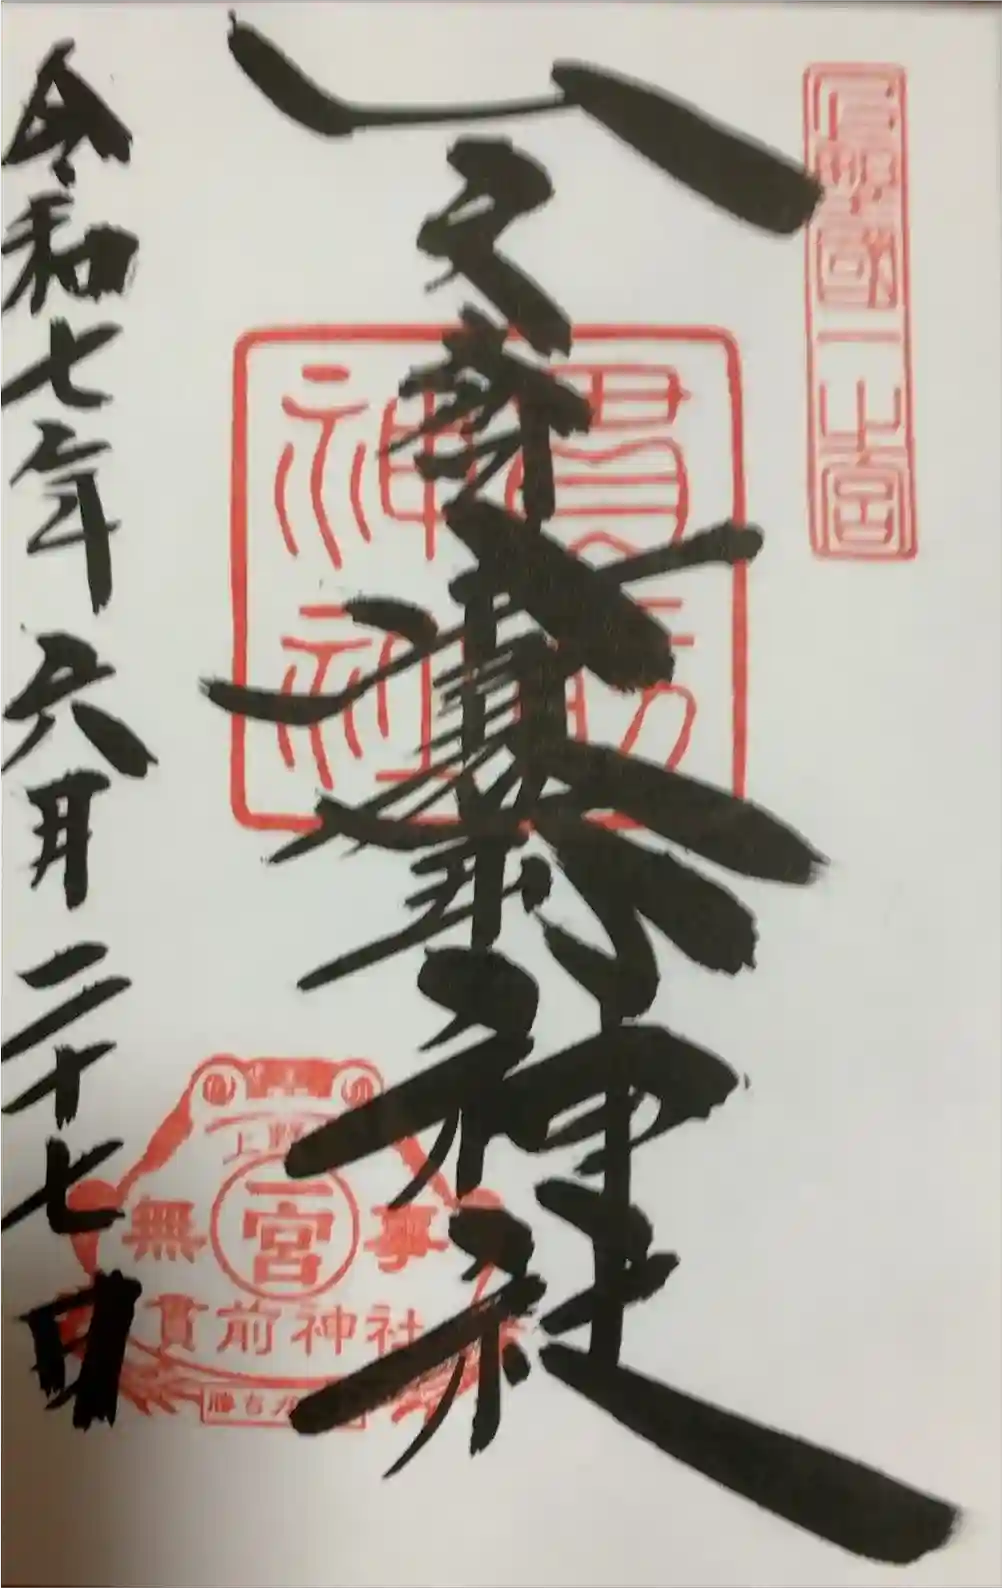 上野國一之宮
一之宮貫前神社
貫前神社
令和七年六月二十七日
上野
一宮
無事
貫前神社